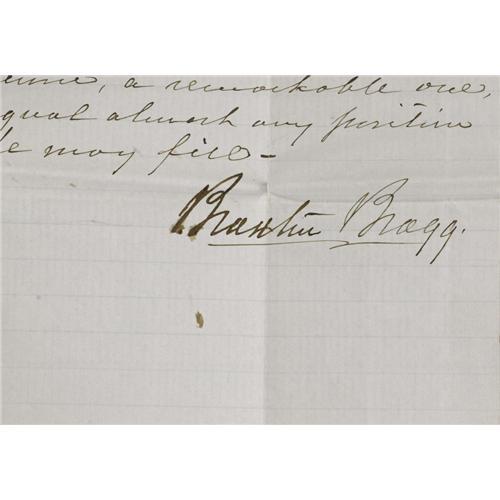 a remarkable one,
equal almost any position
he may fill -
Braxton Bragg.